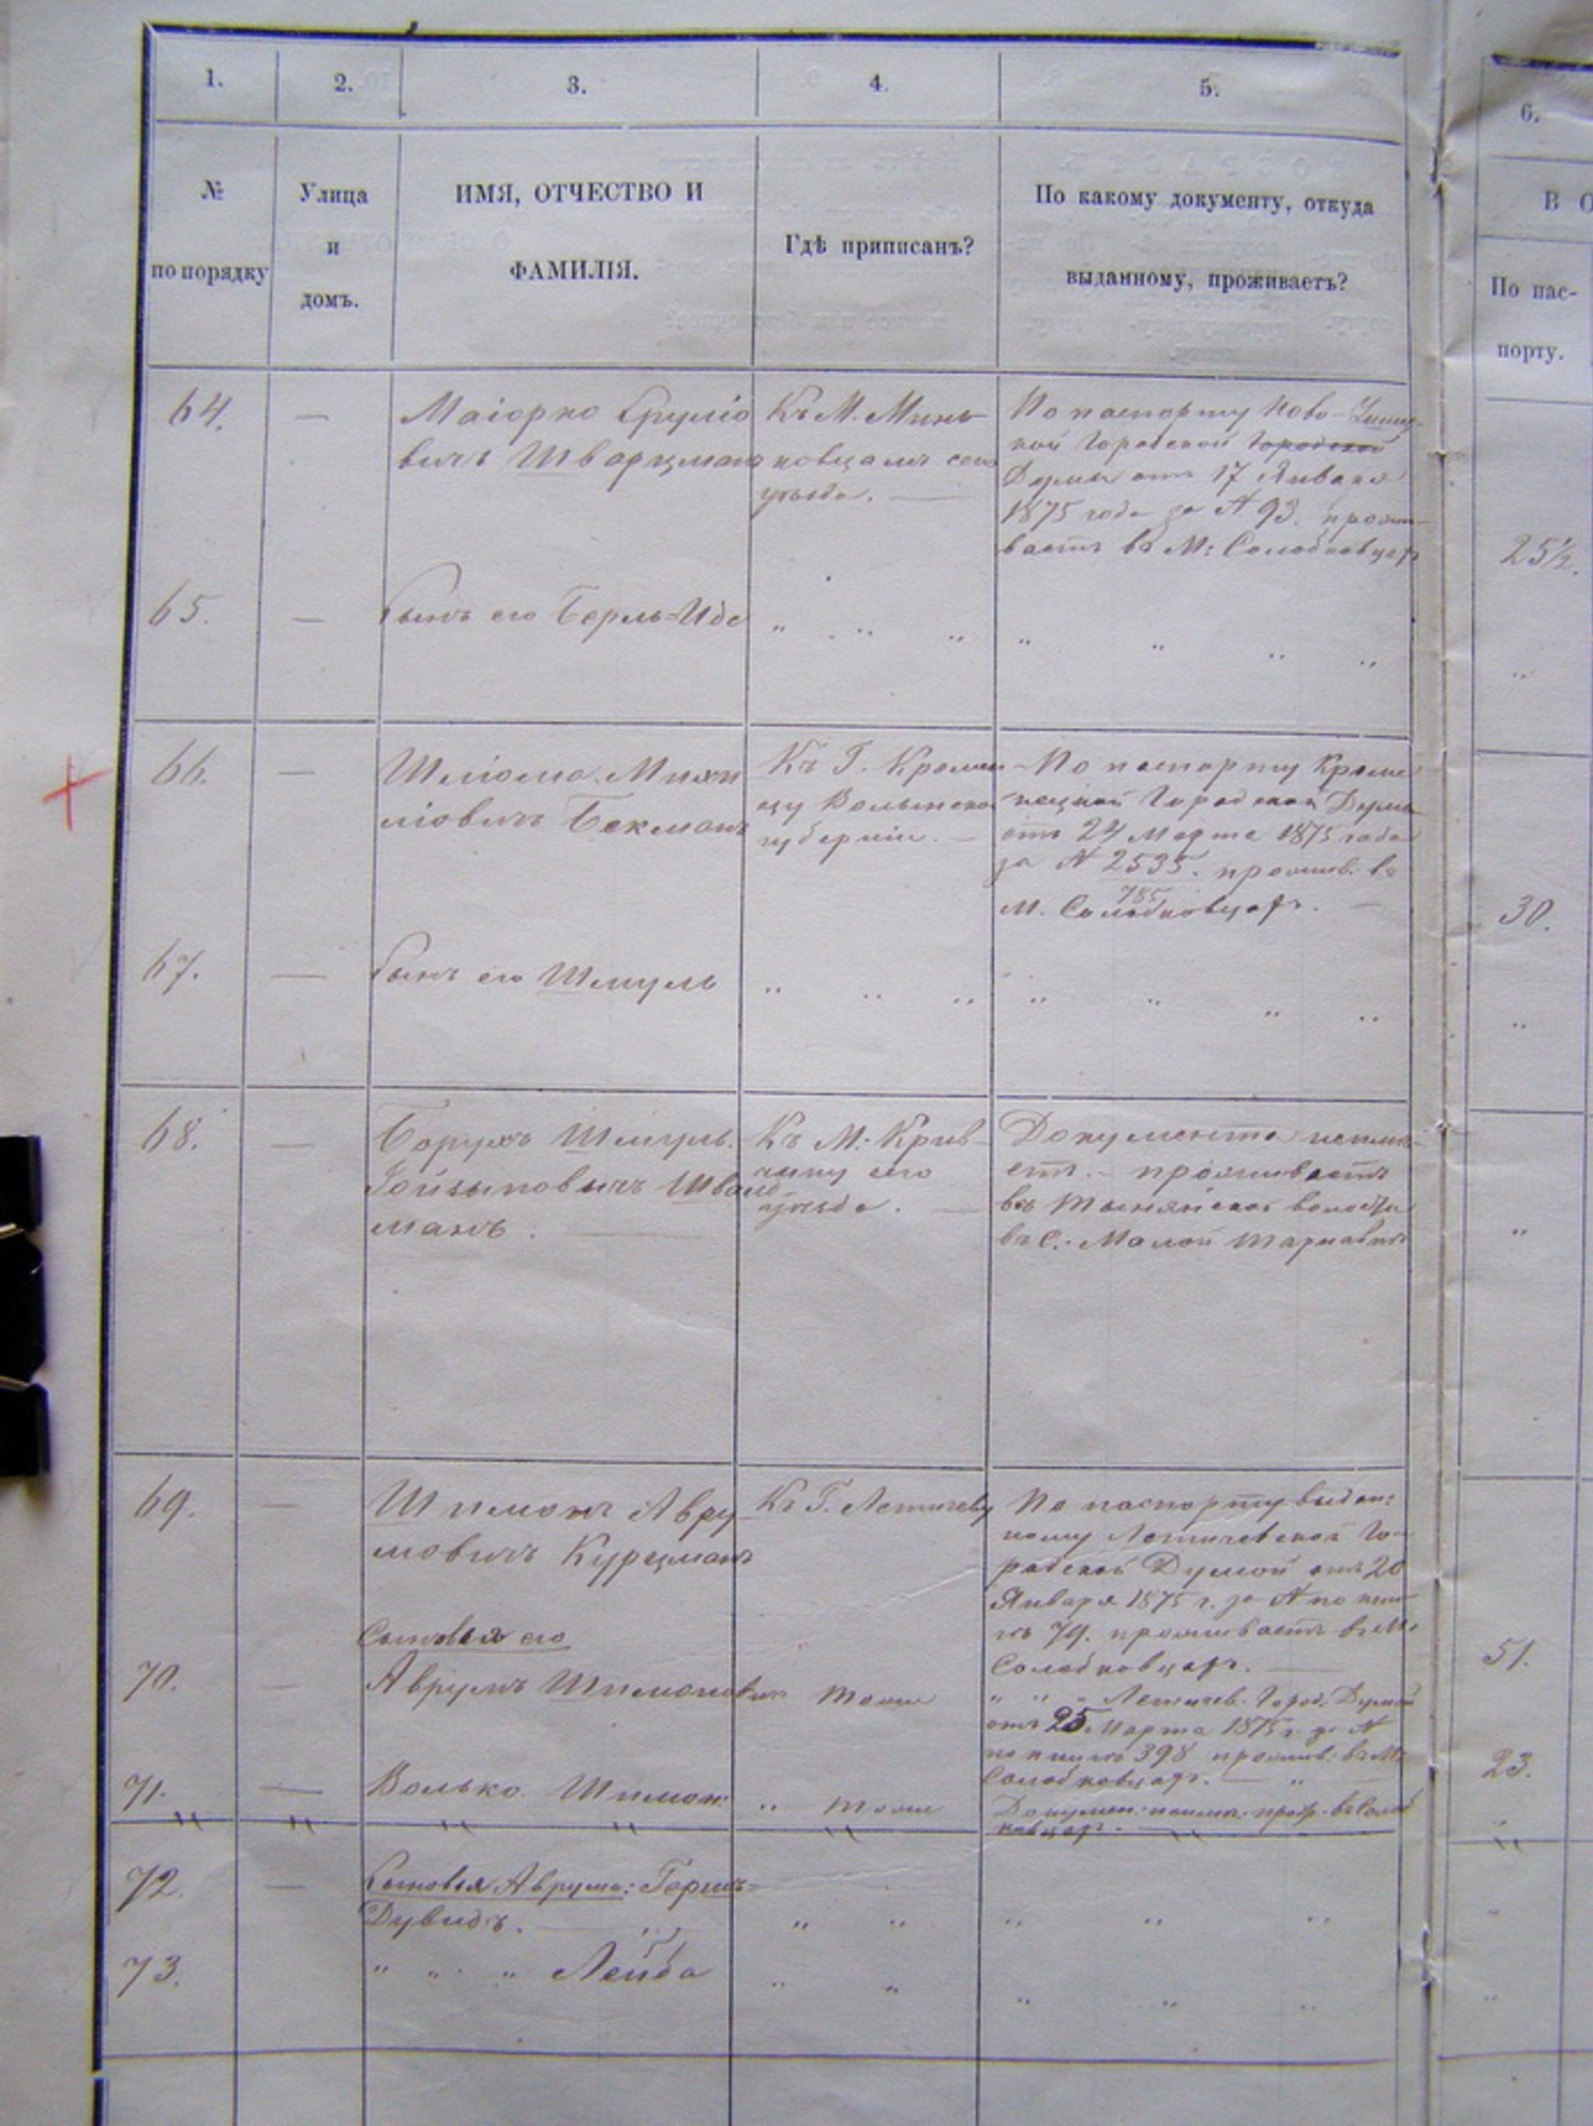 1.
2.
3.
4.
5.
6.
№
по порядку
Улица
и
домъ.
ИМЯ, ОТЧЕСТВО И
ФАМИЛІЯ.
Гдѣ приписанъ?
По какому документу, откуда
выданному, проживаетъ?
В О
По пас-
порту.
64.
—
Маіорко Сруліо
вичъ Шварцманъ
Къ М. Минь
ковцамъ сего
уѣзда. —
По паспорту Ново-Ушиц-
кой Городской Городской
Думы отъ 17 Января
1875 года за № 93. прожи-
ваетъ въ М: Солобковцахъ
25½.
65.
—
Сынъ его Берль=Идс
„ „ „
„ „ „ „
„
66.
—
Шліома Мих
ліовичъ Бекманъ
Къ Г. Кремен
цу Волынской
губерніи. —
По паспорту Креме
нецкой Городской Думы
отъ 24 Марта 1875 года
за № 2535. прожив. въ
785
М. Солобковцахъ. —
30.
67.
—
Сынъ его Шмуль
„ „ „
„ „ „ „
„
68.
—
Борухъ Шмуль.
Іойзыповичъ Швать
манъ. —
Къ М: Крив-
чику сего
уѣзда. —
Документа неимѣ-
етъ. - проживаетъ
въ Тыннянской волости
въ С: Малой Тарнавкѣ
„
69.
—
Шимонъ Авру
мовичъ Курцманъ
Къ Г. Летичеву
По паспорту выдан:
ному Летичевской Го-
родской Думой отъ 20
Января 1875 г. за № по кни-
гѣ 79. проживаетъ въ М:
Солобковцахъ. —
51.
Сыновья его
70.
—
Аврумъ Шимоновичъ
тоже
„ „ „ Летичев. Город. Думой
отъ 25 Марта 1875 г. за №
по книгѣ 398 прожив: въ М:
Солобковцахъ. — „
23.
71.
—
Волько Шимон:
„ тоже
Докумен. неимѣ. прож. въ Солоб
ковцахъ. —
„
72.
—
Сыновья Аврума: Гершъ-
Дувидъ. —
„ „
„ „ „
„
73.
„ „ „ Лейба
„ „
„ „ „
„